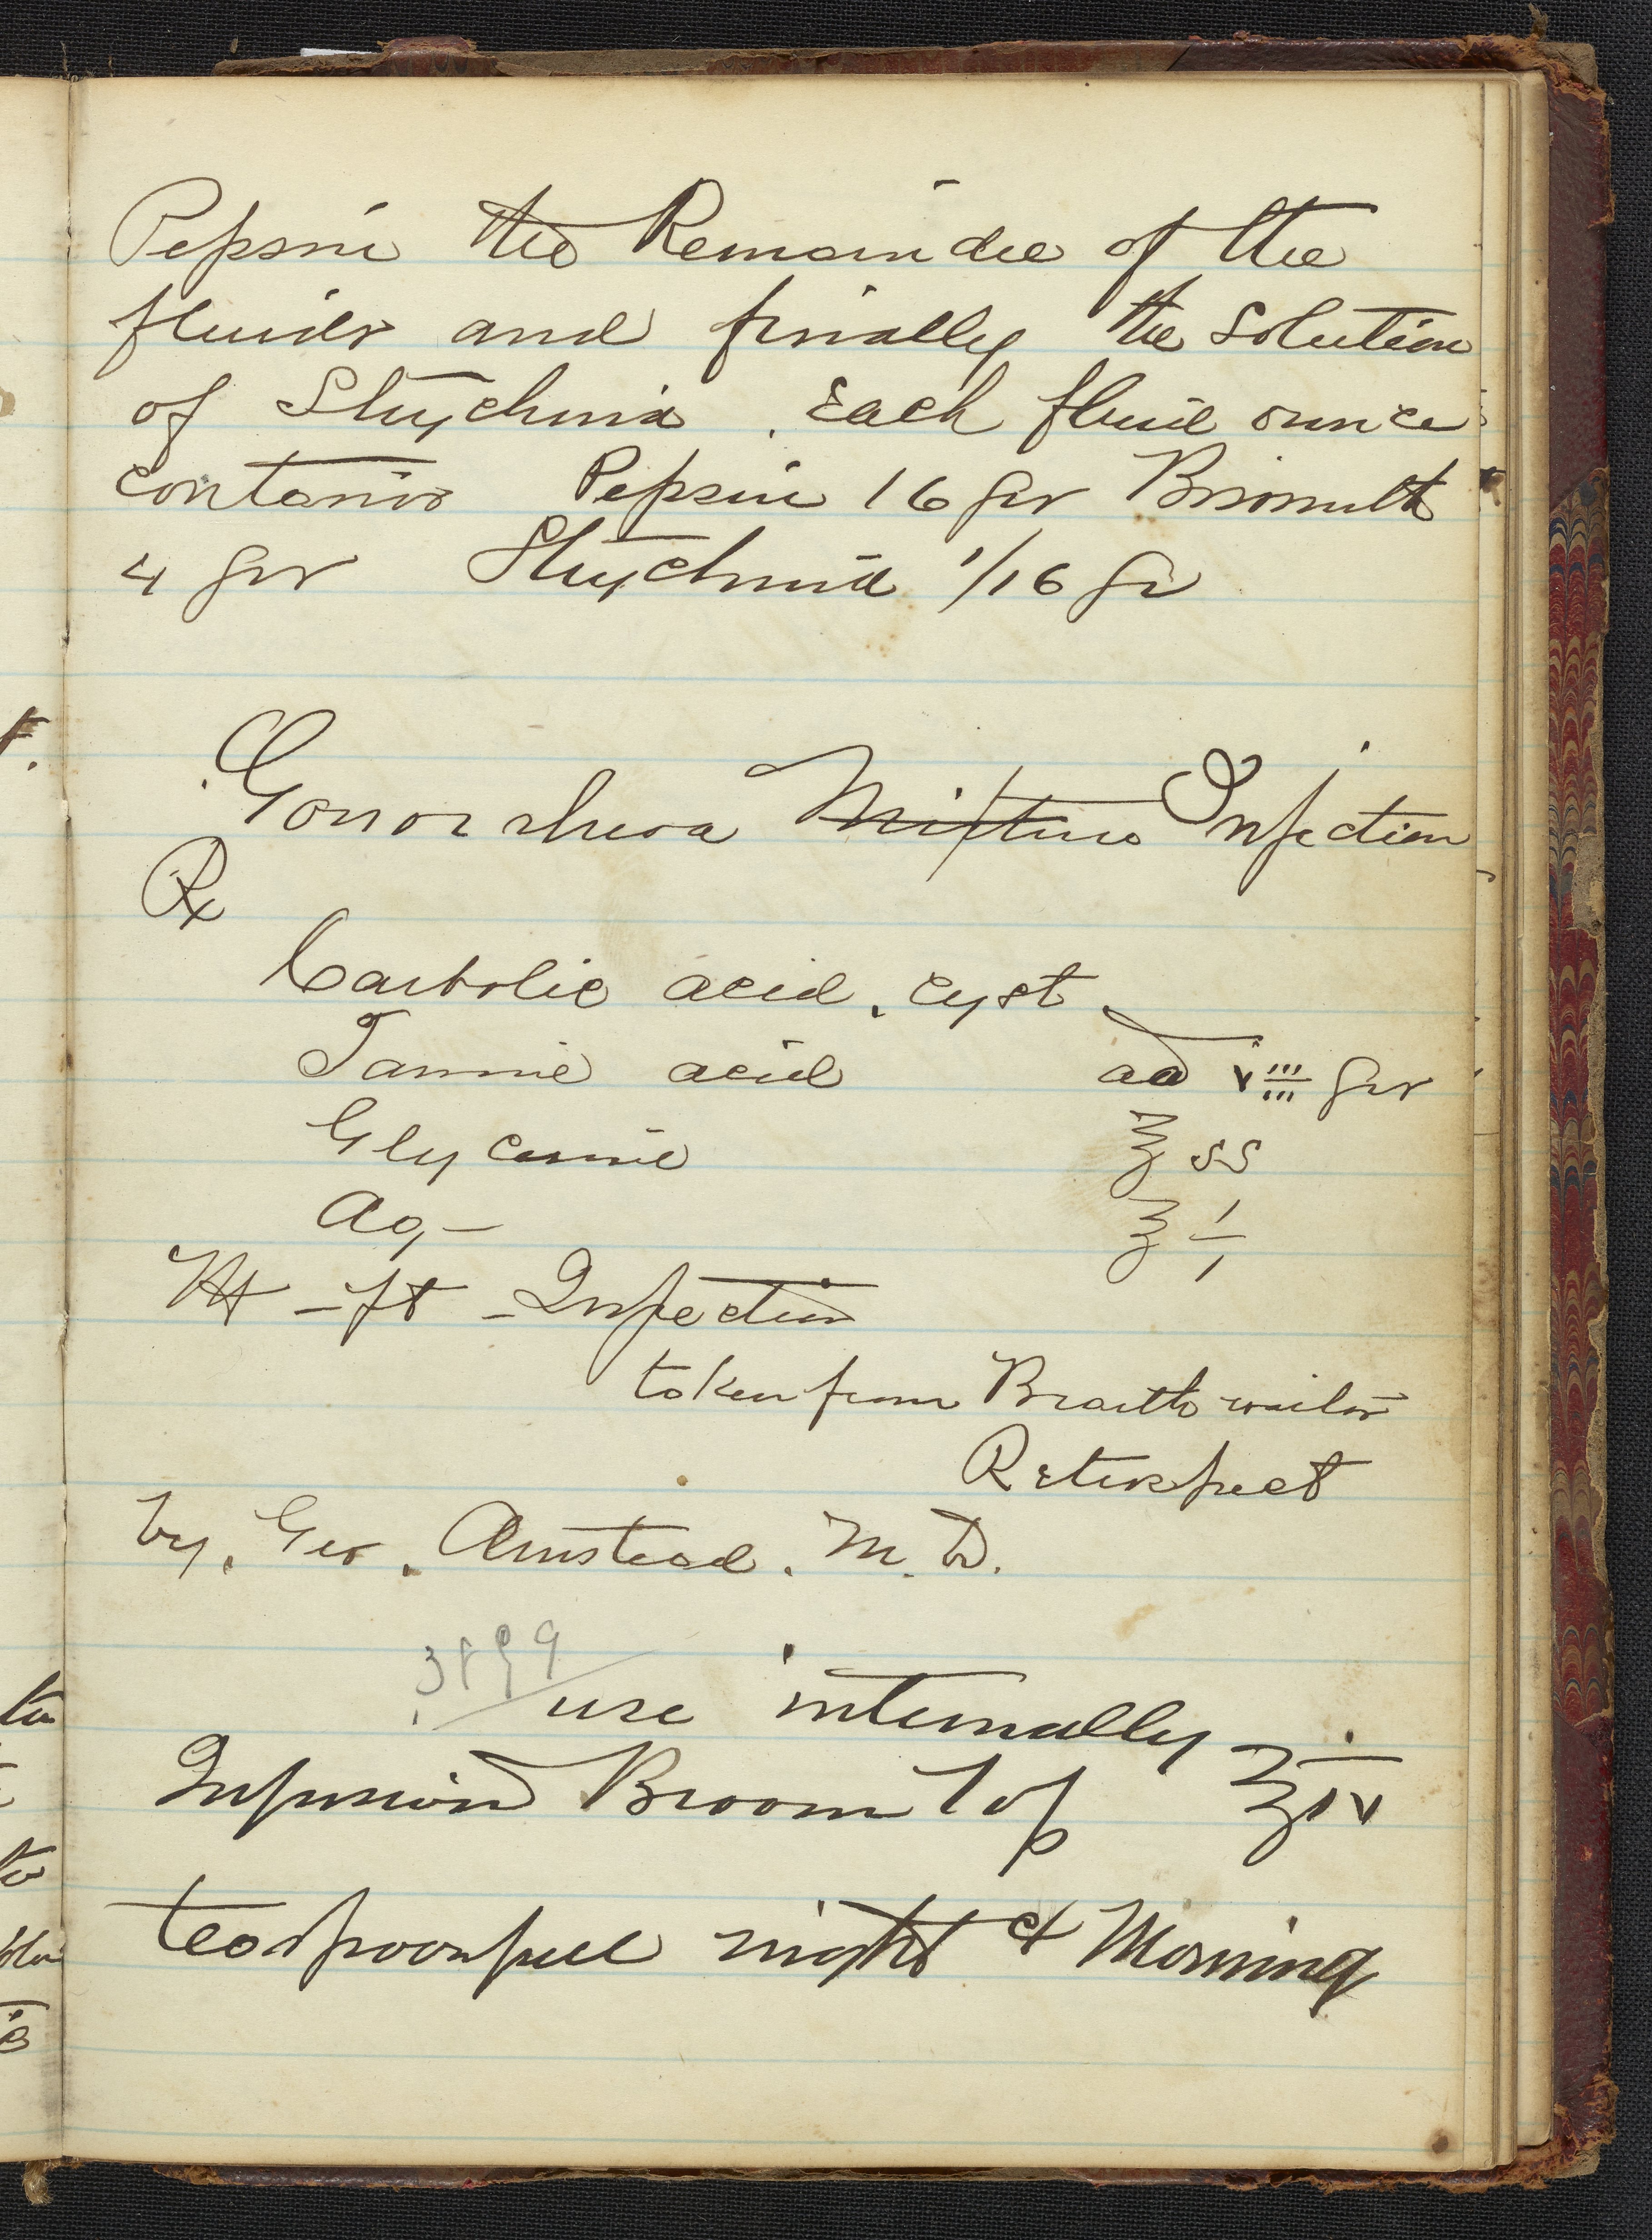 Pepsin the Remainder of the
fluids and finally the Solution
of Strychnia. Each fluid ounce
contains Pepsin 16 grs Bismuth
4 grs Strychnia 1/16 gr
Gonorrhoea Mixture Injection
Rx
Carbolic acid. cryst
Tannic acid aa viii grs
Glycerine ℥ ss
Aq - ℥ i
Mt - ft - Injection
taken from Braithwaites
Retrospect
by. Geo. Armstead. M.D.
use internally
Infusion Broom Top ℥ iv
teaspoonfull night & Morning